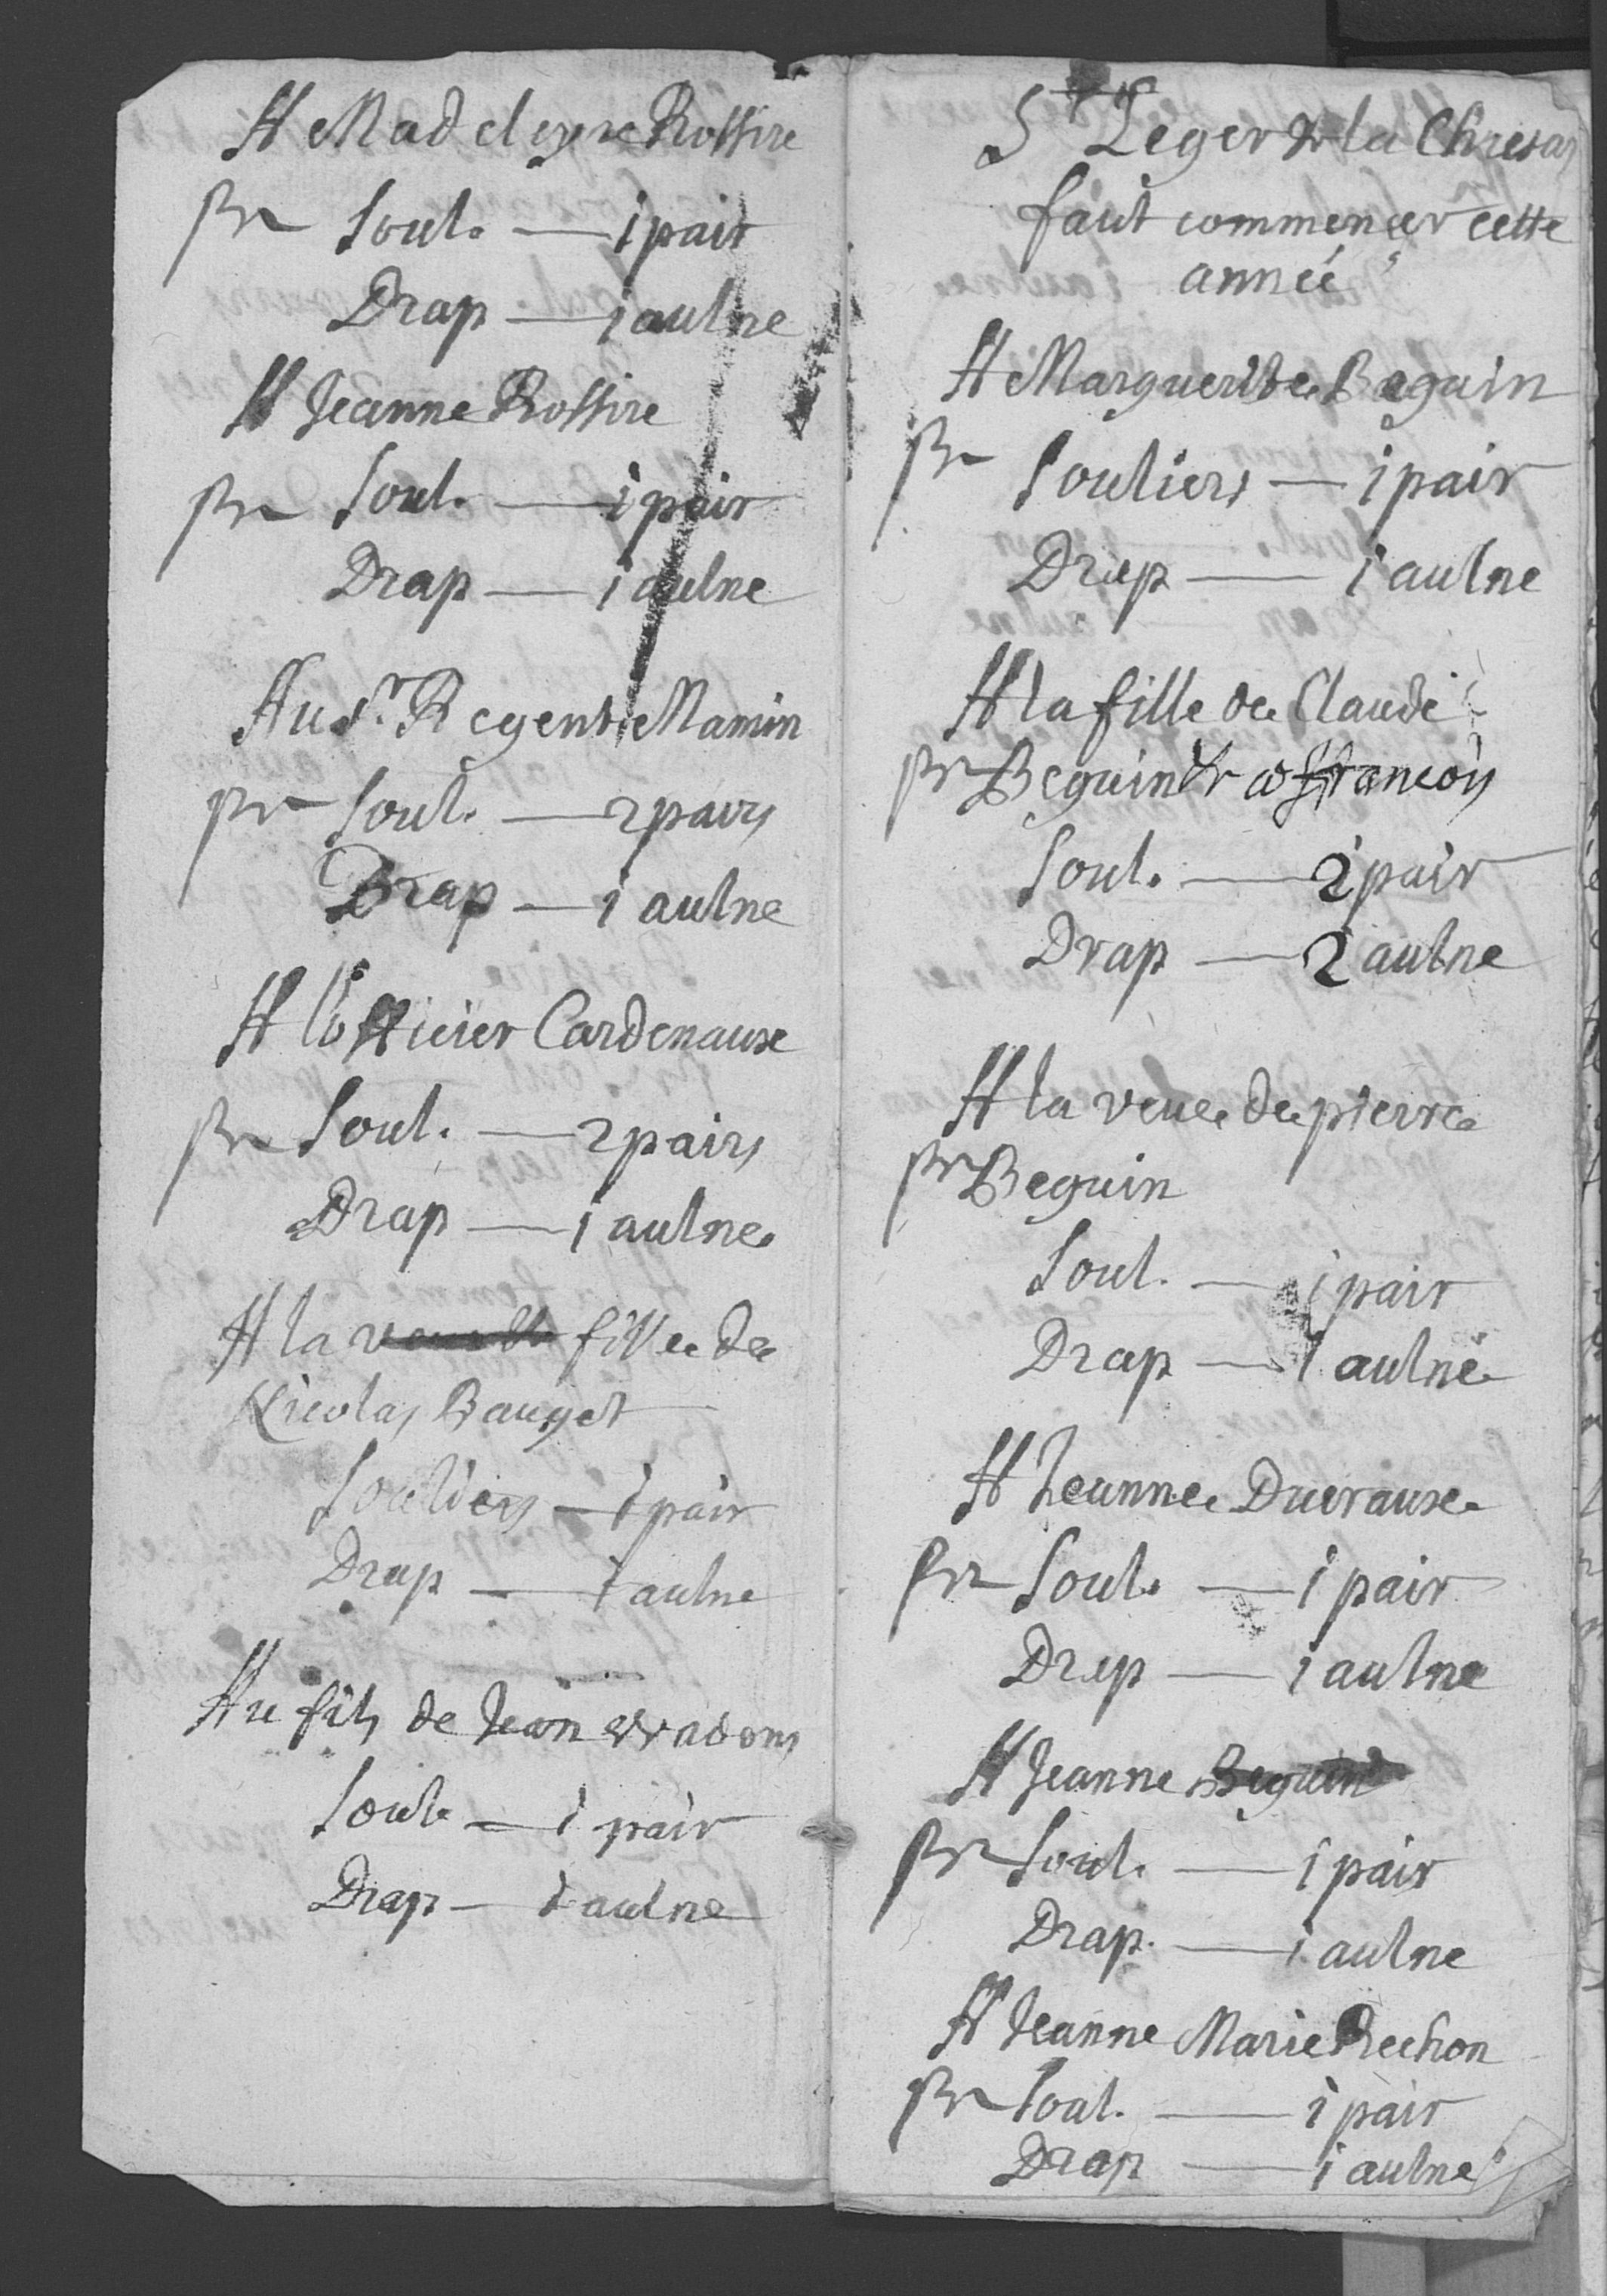 A Madeleyne Rossire
pr Soul. — 1 pair
Drap — 1 aulne
A Jeanne Rossire
pr Soul. — 1 pair
Drap — 1 aulne
Au Sr. Regent Mamin
pr Soul. — 2 pairs
Drap — 1 aulne
A l'officier Cardenaux
pr Soul. — 2 pairs
Drap — 1 aulne
A la fille de
Nicolas Bauget
Souliers — 1 pair
Drap — 1 aulne
Au fils de Jean
Soul. — 1 pair
Drap — 1 aulne
St Leger & la Chiesa
faut commencer cette
année
A Marguerite Beguin
pr Souliers — 1 pair
Drap — 1 aulne
A la fille de Claude
pr Beguin & a françois
Soul. — 2 pair
Drap — 2 aulne
A la veue de pierre
pr Beguin
Soul. — 1 pair
Drap — 1 aulne
A Jeanne Ducraux
pr Soul. — 1 pair
Drap — 1 aulne
A Jeanne Beguin
pr Soul. — 1 pair
Drap. — 1 aulne
A Jeanne Marie Rechon
pr Soul. — 1 pair
Drap — 1 aulne